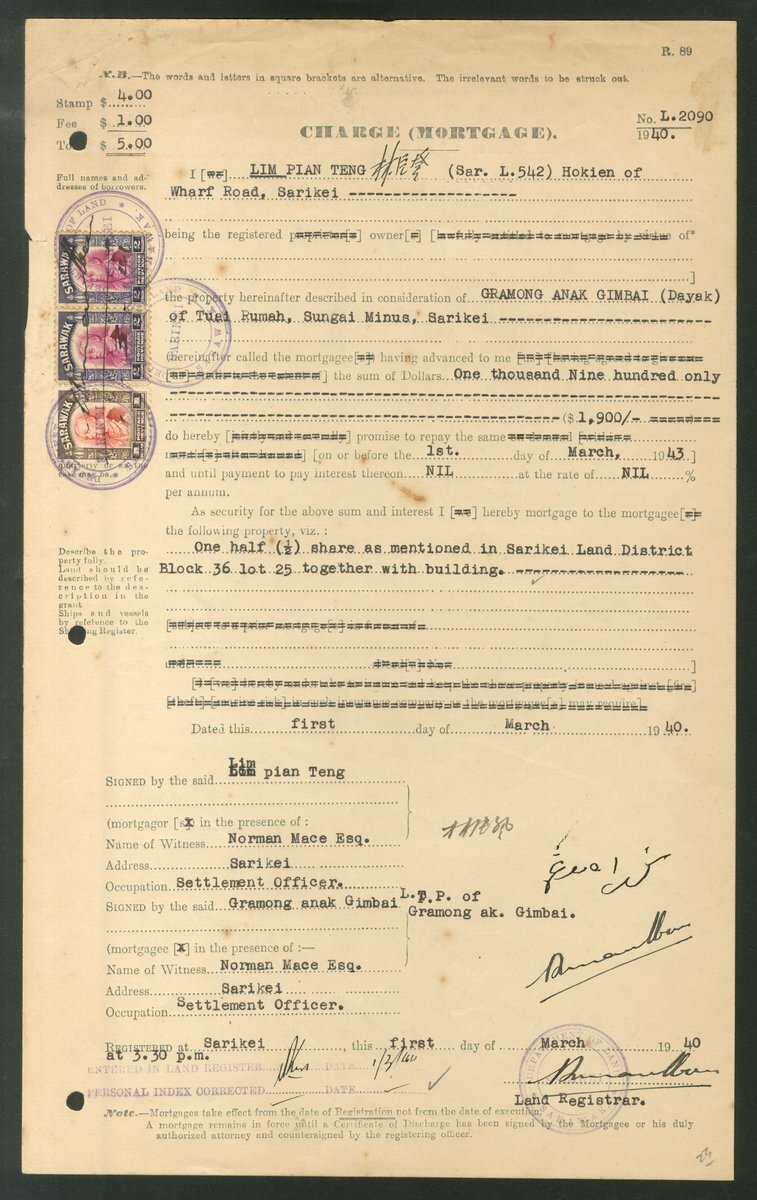 R. 89
N.B.—The words and letters in square brackets are alternative. The irrelevant words to be struck out.
Stamp $ 4.00
Fee $ 1.00
$ 5.00
No. L.2090
1940.
CHARGE (MORTGAGE).
Full names and ad-
dresses of borrowers.
I [we] LIM PIAN TENG (Sar. L.542) Hokien of
Wharf Road, Sarikei
being the registered proprietor[s] owner[s] [lawfully entitled to mortgage by virtue of*
]
SARAWAK
SARAWAK
SARAWAK
the property hereinafter described in consideration of GRAMONG ANAK GIMBAI (Dayak)
of Tuai Rumah, Sungai Minus, Sarikei
(hereinafter called the mortgagee[s]) having advanced to me
] the sum of Dollars One thousand Nine hundred only
($ 1,900/-
do hereby [jointly and severally] promise to repay the same
[on or before the 1st. day of March, 1943]
quarterly or as the
case may be.
and until payment to pay interest thereon NIL at the rate of NIL %
per annum.
As security for the above sum and interest I [we] hereby mortgage to the mortgagee[s]
the following property, viz. :
Describe the pro-
perty fully.
Land should be
described by refe-
rence to the des-
cription in the
grant
Ships and vessels
by reference to the
Shipping Register.
One half (½) share as mentioned in Sarikei Land District
Block 36 lot 25 together with building.
[subject to a prior mortgage[s]
]
Dated this first day of March 1940.
Lim
SIGNED by the said pian Teng
(mortgagor [s] in the presence of :
Name of Witness Norman Mace Esq.
Address Sarikei
Occupation Settlement Officer.
SIGNED by the said Gramong anak Gimbai
L.T.P. of
Gramong ak. Gimbai.
(mortgagee [s] in the presence of :—
Name of Witness Norman Mace Esq.
Address Sarikei
Occupation Settlement Officer.
REGISTERED at Sarikei, this first day of March 1940
at 3.30 p.m.
ENTERED IN LAND REGISTER DATE 1/3/40
PERSONAL INDEX CORRECTED DATE
DEPARTMENT OF LAND
Land Registrar.
Note.—Mortgages take effect from the date of Registration not from the date of execution.
A mortgage remains in force until a Certificate of Discharge has been signed by the Mortgagee or his duly
authorized attorney and countersigned by the registering officer.